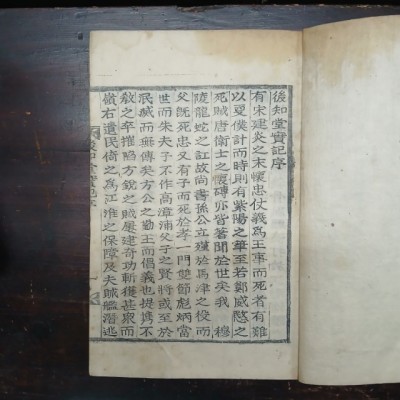 後知堂實記序
有宋建炎之末懷忠仗義爲王事而死者有難
以更僕計而時則有紫陽之筆至若鄭威愍之
死賊唐衛士之懷磚亦皆著聞於世矣我 穆
陵龍蛇之訌故尚書孫公立殣於馬津之役而
父旣死忠又有子而死於孝一門雙節彪炳當
世而朱夫子不作高漳浦父子之賢將或至於
泯滅而無傳矣方公之勤王而倡義也提携不
敎之卒摧陷方銳之賊屢建奇功斬獲甚衆而
嶺右遺民倚之爲江淮之保障及夫賊艦潛逃
後知堂實記序